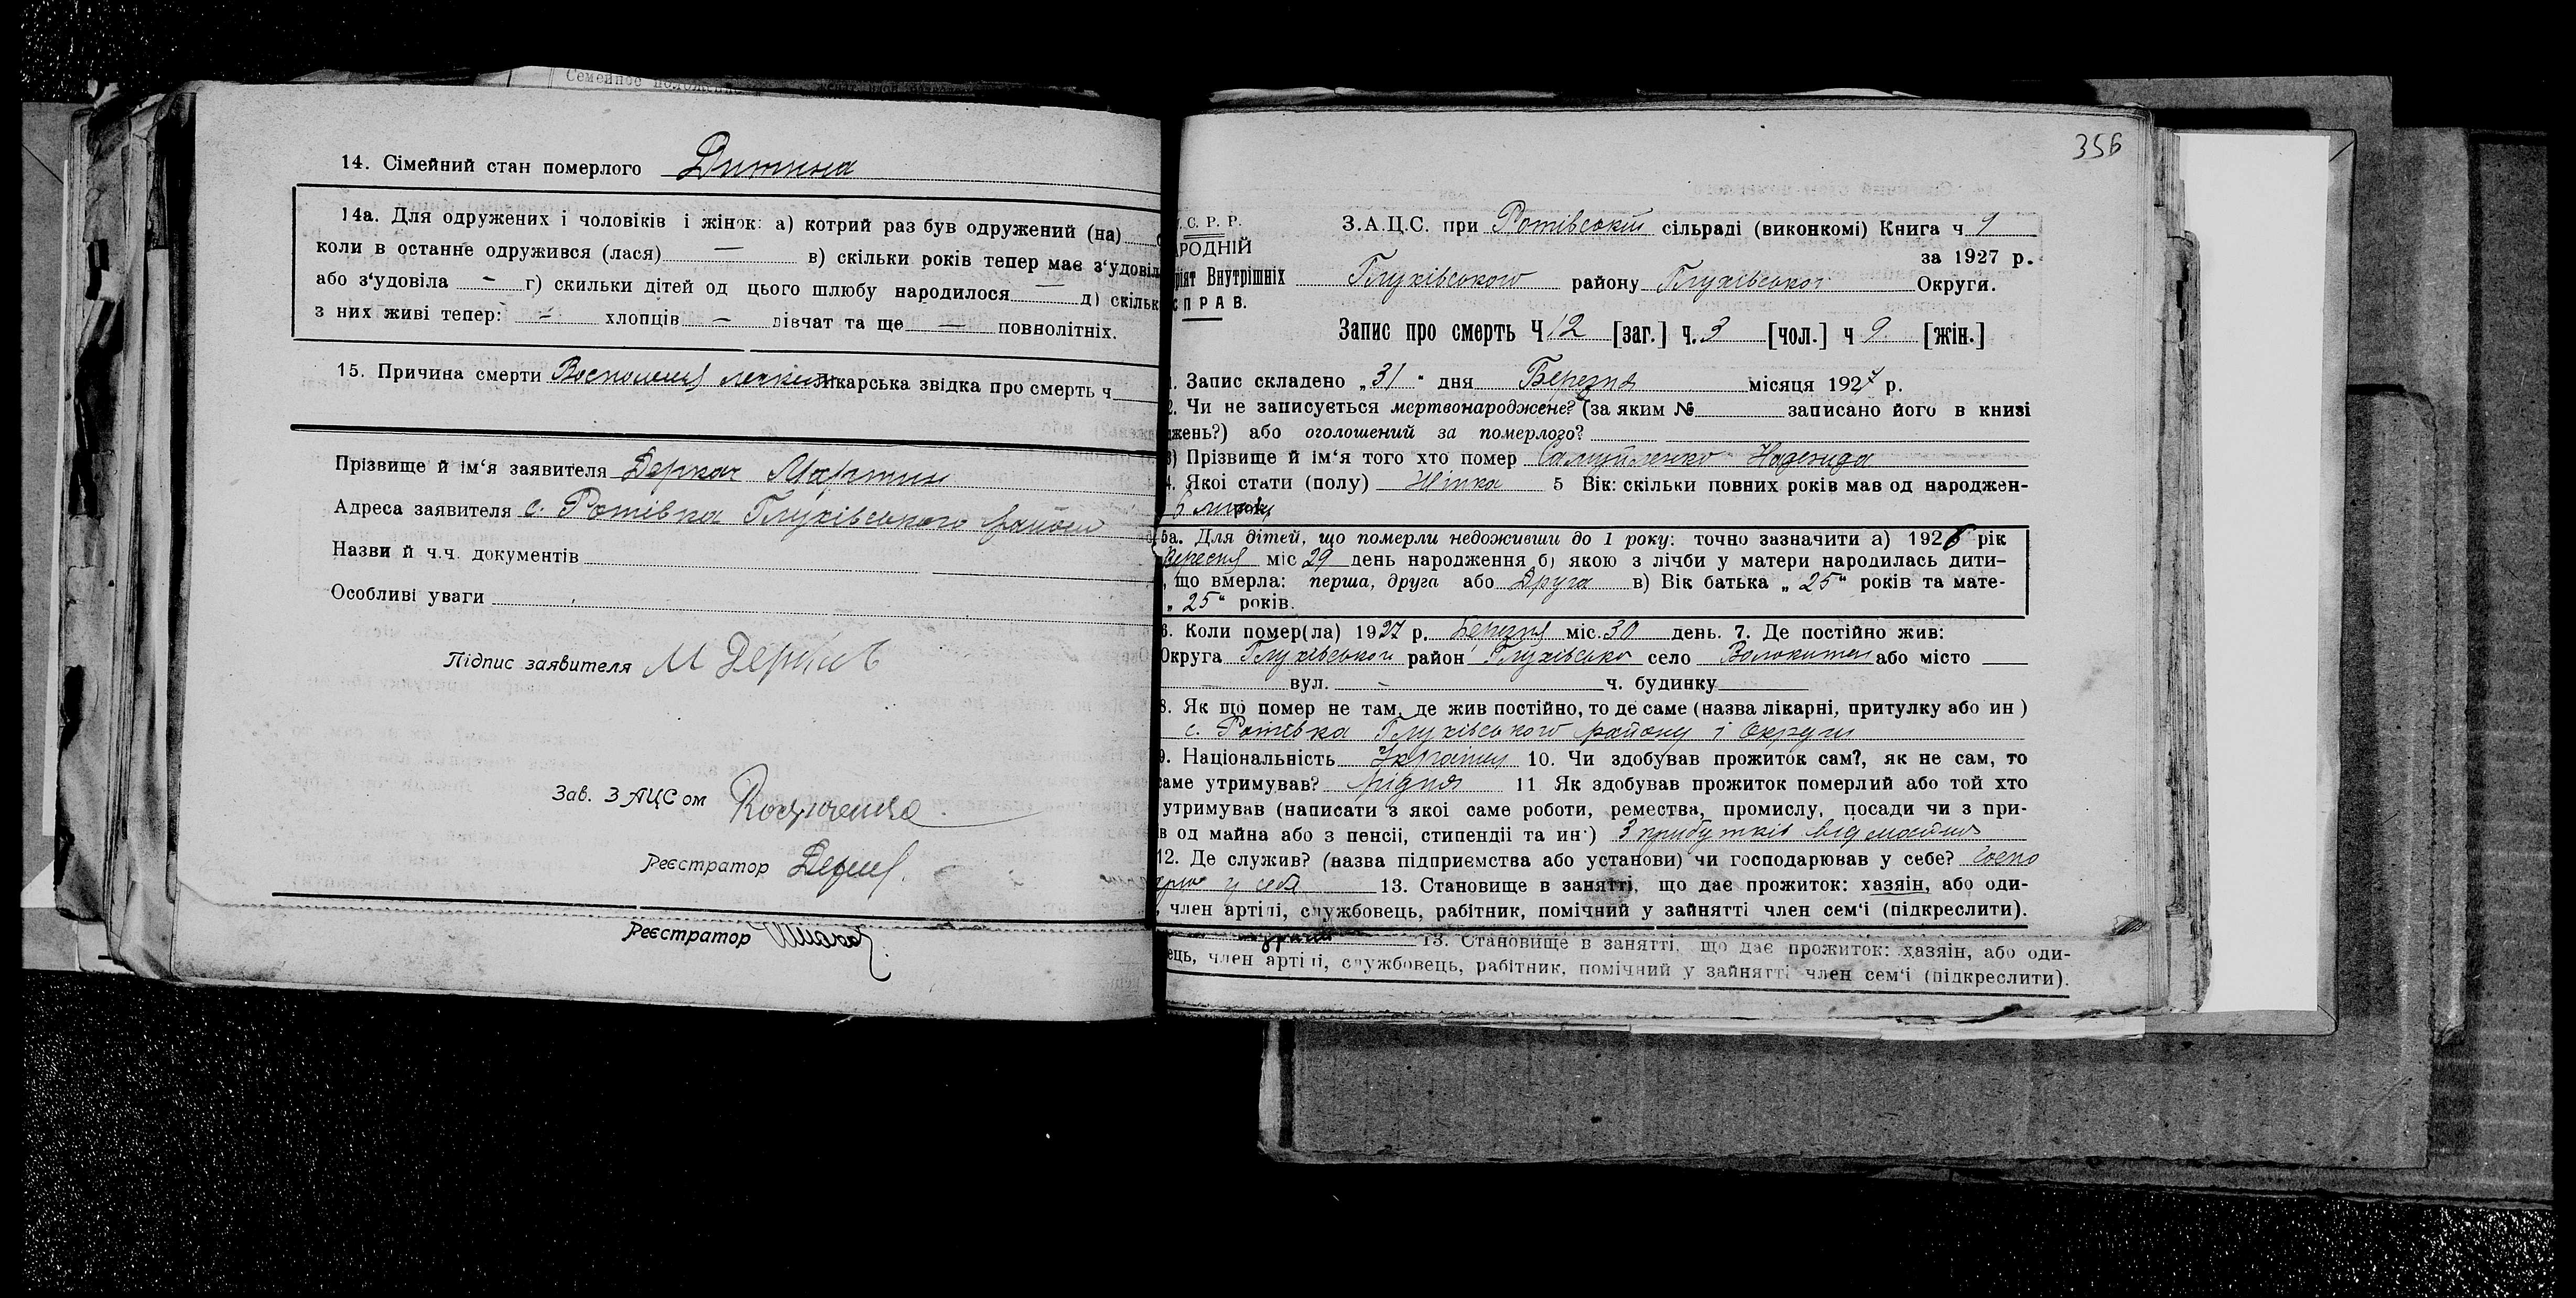 Семейное положение
14. Сімейний стан померлого Дитина
14а. Для одружених і чоловіків і жінок: а) котрий раз був одружений (на)
коли в останне одружився (лася) — в) скільки років тепер має з‘удовіл
або з‘удовіла — г) скильки дітей од цього шлюбу народилося — д) скільк
з них живі тепер: — хлопців — дівчат та ще — повнолітніх.
15. Причина смерти Воспаления легких лікарська звідка про смерть ч
Прізвище й ім‘я заявителя Деркач Мартин
Адреса заявителя с. Ротівка Глухівського району
Назви й ч.ч. документів
Особливі уваги
Підпис заявителя М Деркач
Зав. ЗАЦСом
Реєстратор
Реєстратор
356
С. Р. Р.
АРОДНІЙ
ріят Внутрішніх
СПРАВ.
З.А.Ц.С. при Ротівській сільраді (виконкомі) Книга ч 1
за 1927 р.
Глухівського району Глухівської Округи.
Запис про смерть Ч 12 [заг.] ч. 3 [чол.] ч 9. [жін.]
1. Запис складено „31“ дня Березня місяця 1927 р.
2. Чи не записується мертвонароджене? (за яким № записано його в книзі
джень?) або оголошений за померлого?
3) Прізвище й ім‘я того хто помер Самуйленко Надежда
4. Якоі стати (полу) Жінка 5 Вік: скільки повних років мав од народжен-
6 місяців
5а. Для дітей, що померли недоживши до 1 року: точно зазначити а) 1926 рік
Вересня міс 29 день народження б) якою з лічби у матери народилась дити-
, що вмерла: перша, друга або Друга в) Вік батька „25“ років та мате-
„25“ років.
6. Коли помер(ла) 1927 р. Березня міс. 30 день. 7. Де постійно жив:
Округа Глухівської район Глухівсько село Волокитен або місто —
— вул. — ч. будинку
8. Як що помер не там, де жив постійно, то де саме (назва лікарні, притулку або ин)
с. Ротівка Глухівського району і Округи
9. Національність 10. Чи здобував прожиток сам?, як не сам, то
саме утримував? рідня 11 Як здобував прожиток померлий або той хто
утримував (написати з якоі саме роботи, ремества, промислу, посади чи з при-
в од майна або з пенсіі, стипендіі та ин·) З прибутків від
12. Де служив? (назва підприємства або установи) чи господарював у себе? Госпо
у себя 13. Становище в занятті, що дає прожиток: хазяін, або оди-
, член артілі, службовець, рабітник, помічний у зайнятті член сем‘і (підкреслити).
13. Становище в занятті, що дає прожиток: хазяін, або оди-
ець, член артілі, службовець, рабітник, помічний у зайнятті член сем‘і (підкреслити).